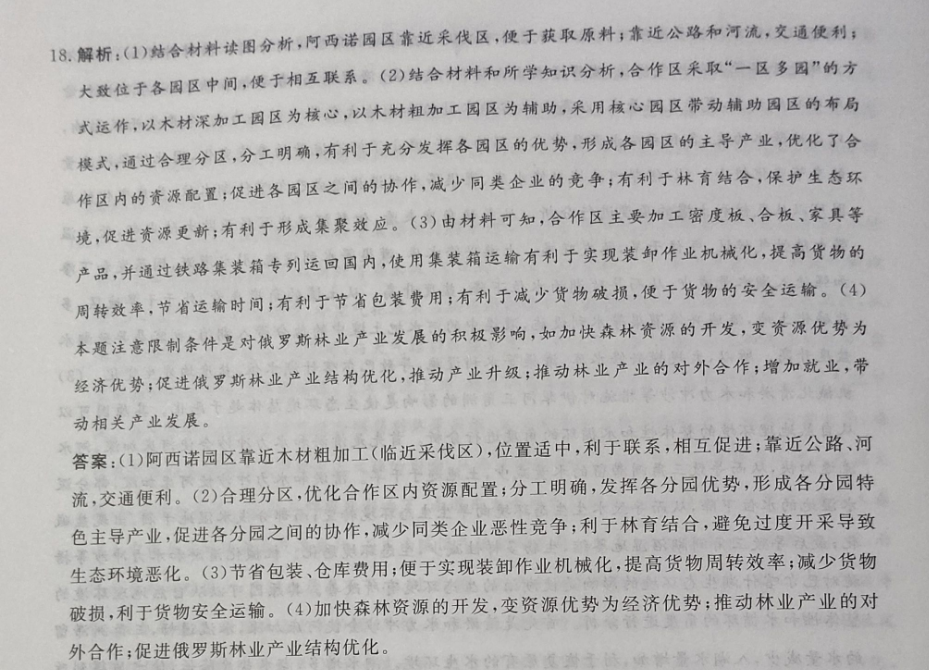 18.解析:(1)结合材料读图分析,阿西诺园区靠近采伐区,便于获取原料;靠近公路和河流,交通便利;
大致位于各园区中间,便于相互联系。(2)结合材料和所学知识分析,合作区采取“一区多园”的方
式运作,以木材深加工园区为核心,以木材粗加工园区为辅助,采用核心园区带动辅助园区的布局
模式,通过合理分区,分工明确,有利于充分发挥各园区的优势,形成各园区的主导产业,优化了合
作区内的资源配置;促进各园区之间的协作,减少同类企业的竞争;有利于林育结合,保护生态环
境,促进资源更新;有利于形成集聚效应。(3)由材料可知,合作区主要加工密度板、合板、家具等
产品,并通过铁路集装箱专列运回国内,使用集装箱运输有利于实现装卸作业机械化,提高货物的
周转效率,节省运输时间;有利于节省包装费用;有利于减少货物破损,便于货物的安全运输。(4)
本题注意限制条件是对俄罗斯林业产业发展的积极影响,如加快森林资源的开发,变资源优势为
经济优势;促进俄罗斯林业产业结构优化,推动产业升级;推动林业产业的对外合作;增加就业,带
动相关产业发展。
答案:(1)阿西诺园区靠近木材粗加工(临近采伐区),位置适中,利于联系,相互促进;靠近公路、河
流,交通便利。(2)合理分区,优化合作区内资源配置;分工明确,发挥各分园优势,形成各分园特
色主导产业,促进各分园之间的协作,减少同类企业恶性竞争;利于林育结合,避免过度开采导致
生态环境恶化。(3)节省包装、仓库费用;便于实现装卸作业机械化,提高货物周转效率;减少货物
破损,利于货物安全运输。(4)加快森林资源的开发,变资源优势为经济优势;推动林业产业的对
外合作;促进俄罗斯林业产业结构优化。